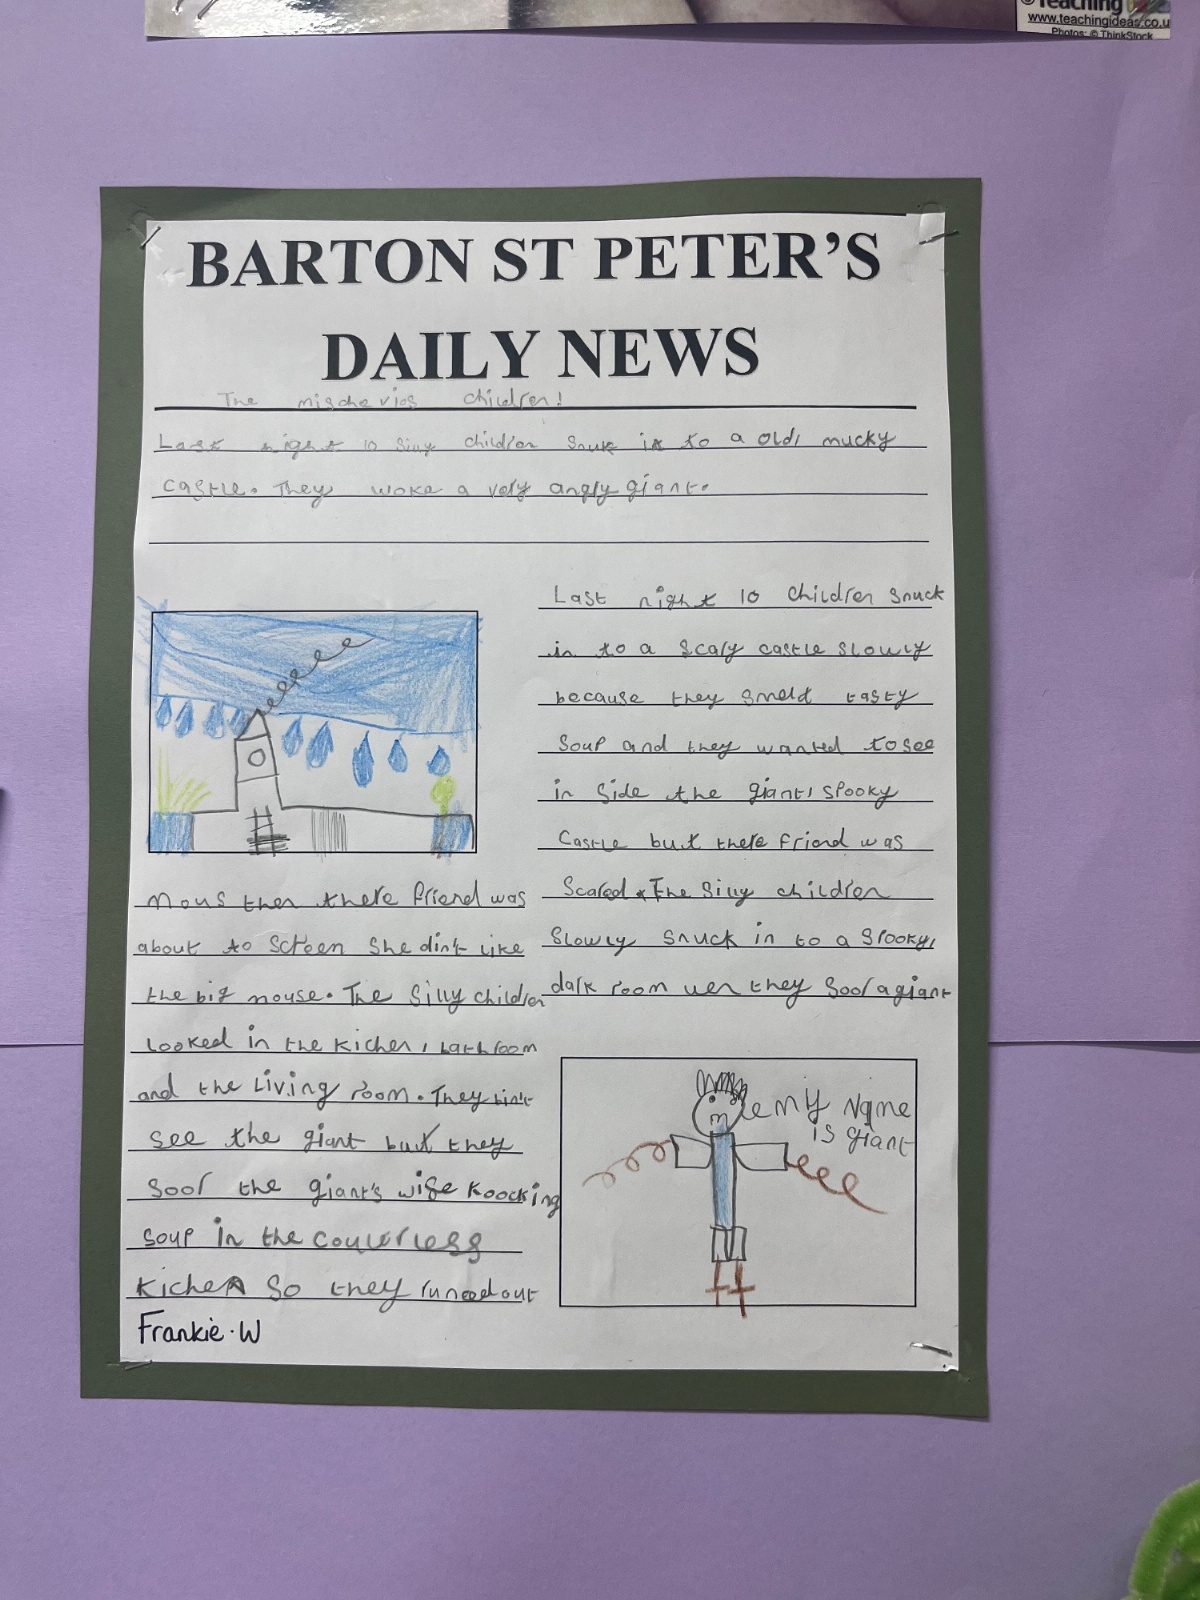 Teaching
www.teachingideas.co.u
Photos: © ThinkStock
BARTON ST PETER'S
DAILY NEWS
The mischevios children!
Last night 10 silly children snuk in to a old, mucky
castle. They woke a very angry giant.
Last night 10 children snuck
in to a scary castle slowly
because they smeld tasty
soup and they wanted to see
in side the giant, spooky
castle but there friend was
scared. The silly children
slowly snuck in to a spooky,
dark room wen they soor a giant
mous then there friend was
about to screen she din't like
the big mouse. The silly children
looked in the kichen, bathroom
and the living room. They din't
see the giant but they
soor the giant's wife koocking
soup in the coulerless
kichen so they runed out
Frankie.W
my name
is giant